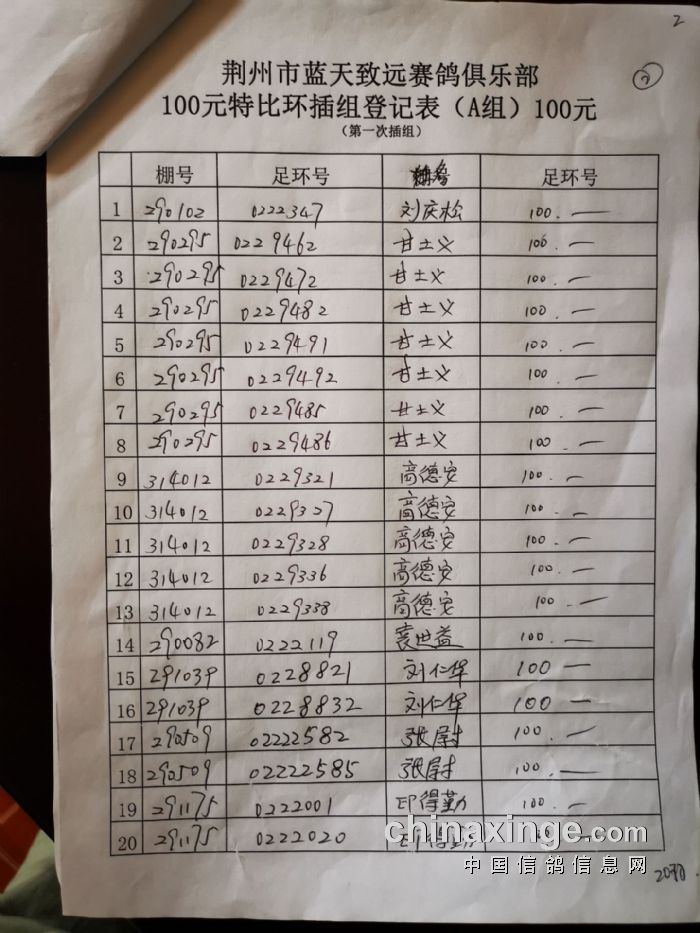 2
②
荆州市蓝天致远赛鸽俱乐部
100元特比环插组登记表（A组）100元
（第一次插组）
棚号 足环号 足环号
1 290102 0222347 刘庆松 100.—
2 290295 0229462 甘士义 100.—
3 290295 0229472 甘士义 100.—
4 290295 0229482 甘士义 100.—
5 290295 0229491 甘士义 100.—
6 290295 0229492 甘士义 100.—
7 290295 0229485 甘士义 100.—
8 290295 0229486 甘士义 100.—
9 314012 0229321 高德安 100.—
10 314012 0229327 高德安 100.—
11 314012 0229328 高德安 100.—
12 314012 0229336 高德安 100.—
13 314012 0229338 高德安 100.—
14 290082 0222119 袁世益 100.—
15 291039 0228821 刘仁华 100—
16 291039 0228832 刘仁华 100—
17 290509 02222582 张尉 100.—
18 290509 02222585 张尉 100.—
19 291175 0222001 印得勤 100.—
20 291175 0222020 印得勤
chinaxinge.com
中国信鸽信息网